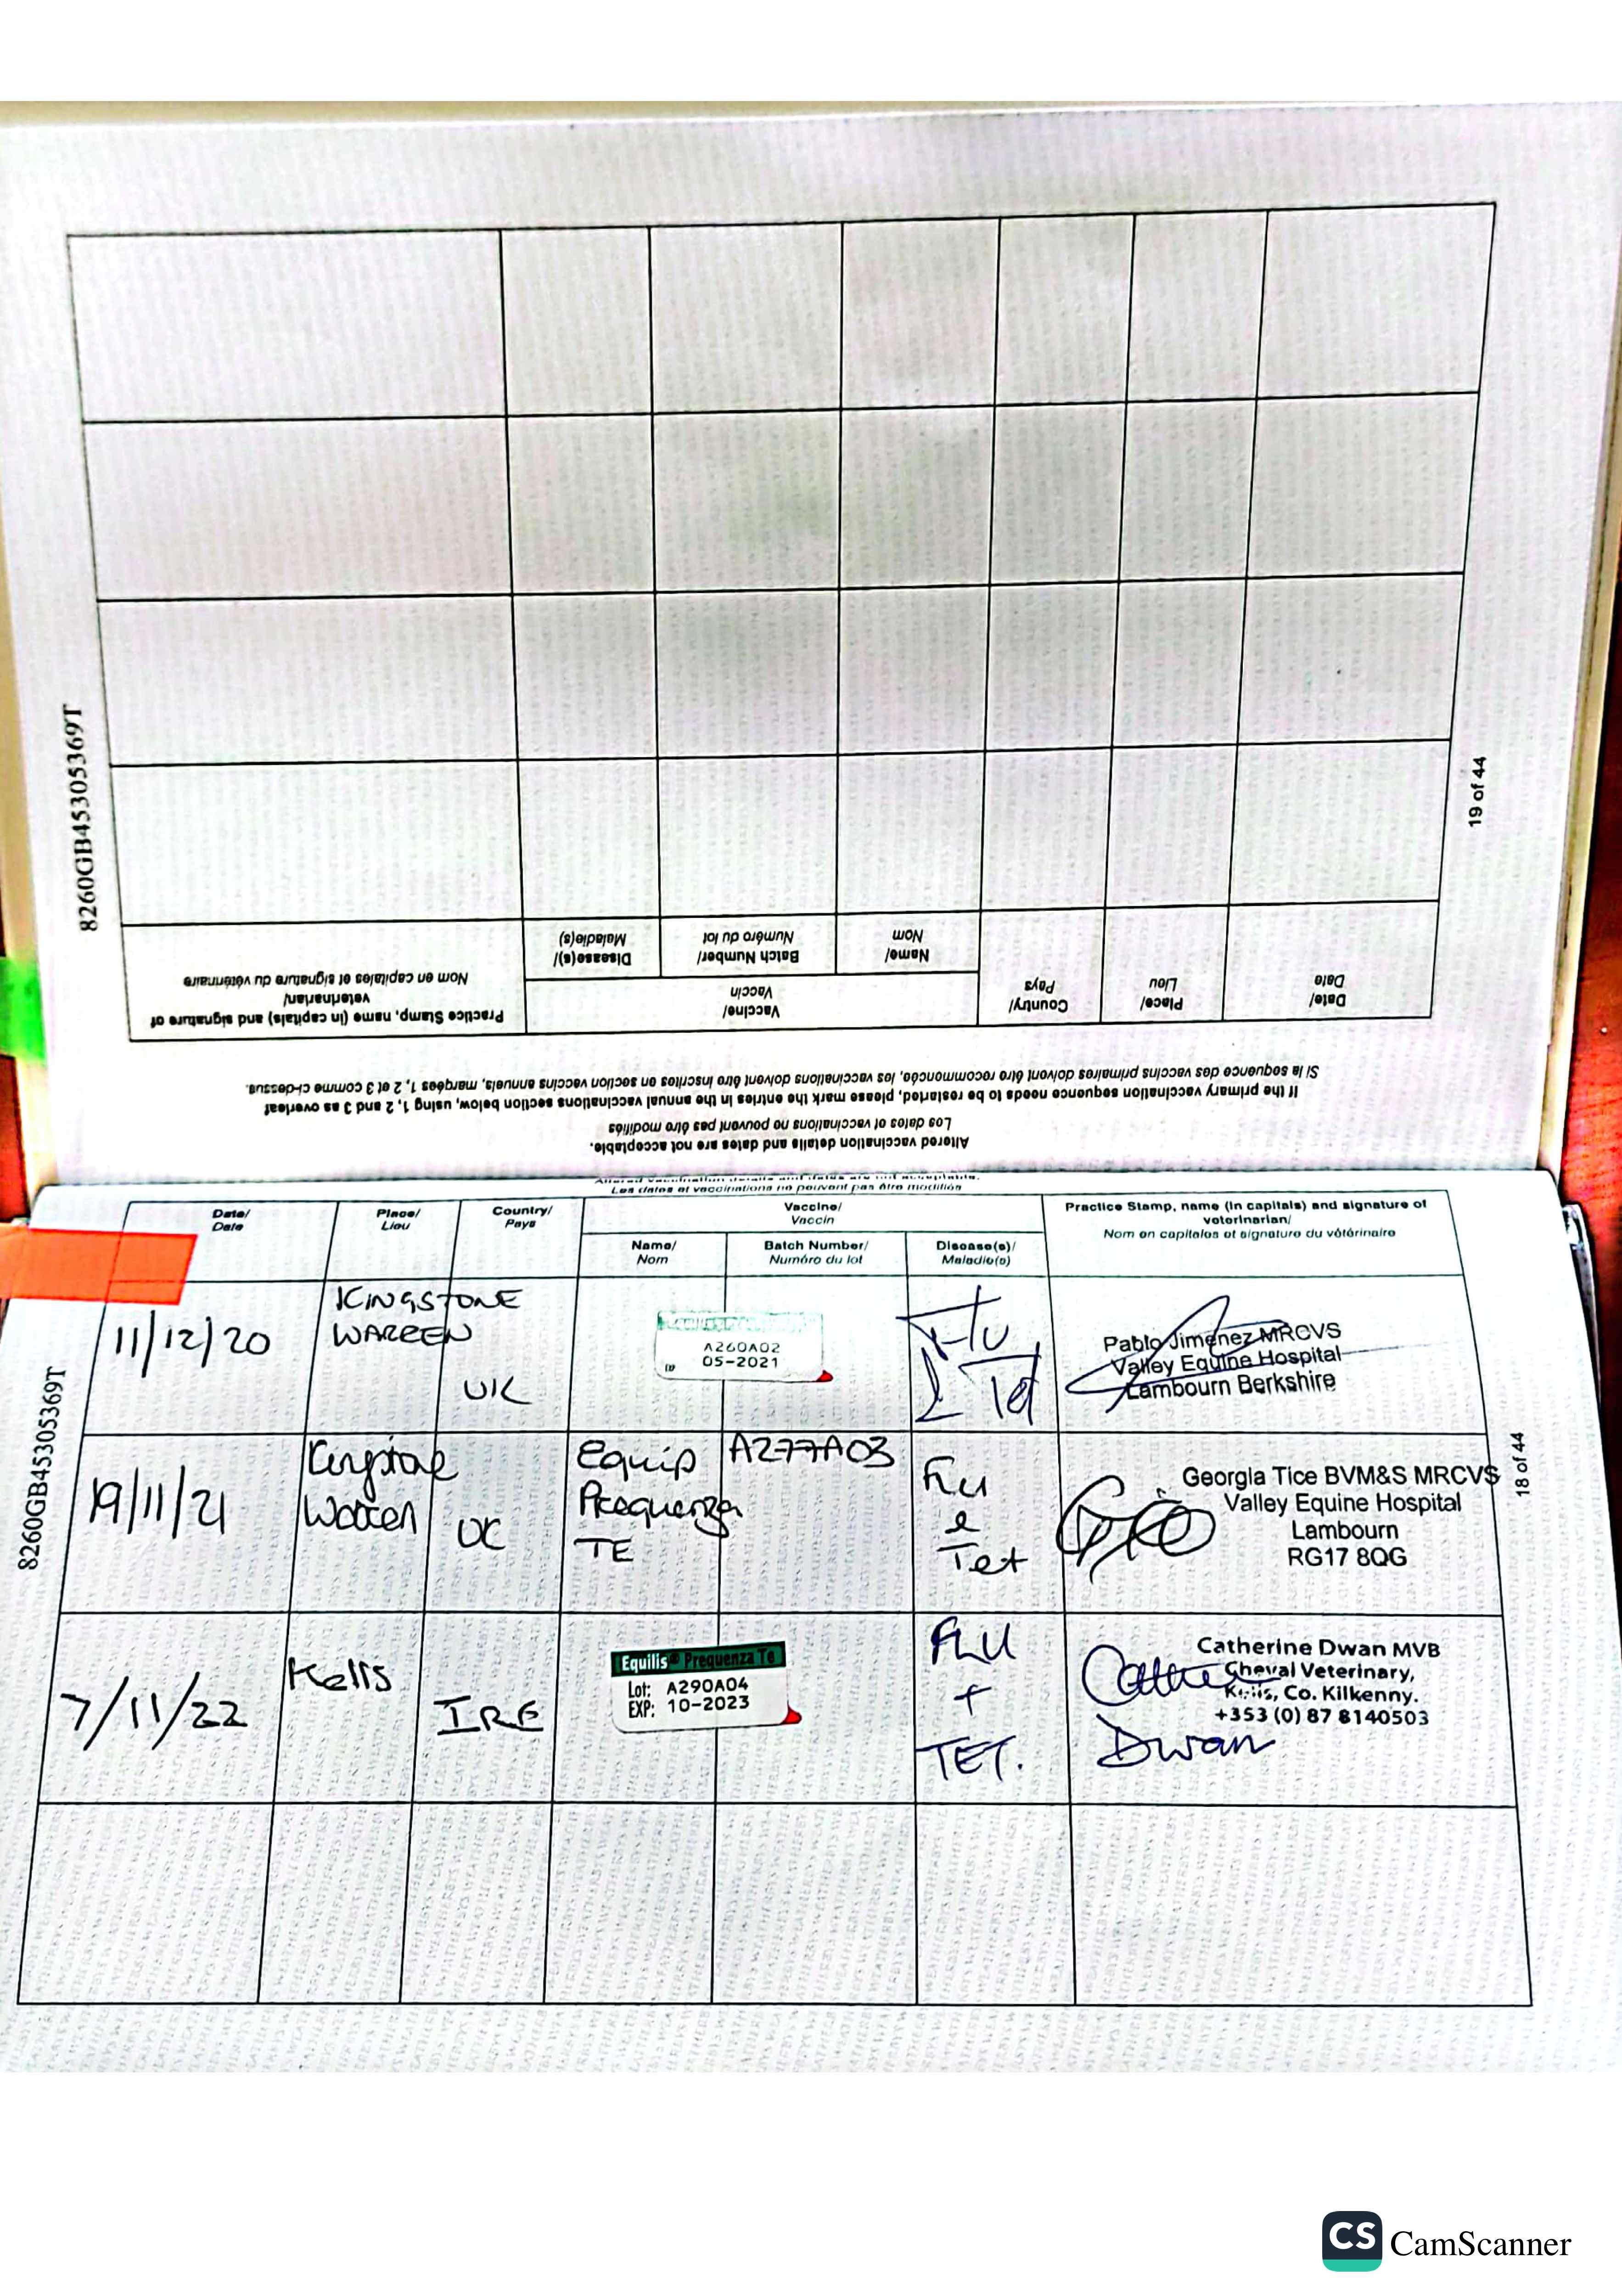 8260GB45305369T
19 of 44
Altered vaccination details and dates are not acceptable.
Les dates et vaccinations ne peuvent pas être modifiés
If the primary vaccination sequence needs to be restarted, please mark the entries in the annual vaccinations section below, using 1, 2 and 3 as overleaf
Si la sequence des vaccins primaires doivent être recommencée, les vaccinations doivent être inscrites en section vaccins annuels, marqées 1, 2 et 3 comme ci-dessus.
Date/
Date
Place/
Lieu
Country/
Pays
Vaccine/
Vaccin
Name/
Nom
Batch Number/
Numéro du lot
Disease(s)/
Maladie(s)
Practice Stamp, name (in capitals) and signature of
veterinarian/
Nom en capitales et signature du vétérinaire
Altered vaccination details and dates are not acceptable.
Les dates et vaccinations ne peuvent pas être modifiés
Date/
Date
Place/
Lieu
Country/
Pays
Vaccine/
Vaccin
Name/
Nom
Batch Number/
Numéro du lot
Disease(s)/
Maladie(s)
Practice Stamp, name (in capitals) and signature of
veterinarian/
Nom en capitales et signature du vétérinaire
11/12/20
KINGSTONE
WARREN
UK
A260A02
05-2021
Flu
Tet
Pablo Jimenez MRCVS
Valley Equine Hospital
Lambourn Berkshire
19/11/21
Kingstone
Warren
UK
Equip
Prequenza
TE
A277A03
Flu
&
Tet
Georgia Tice BVM&S MRCVS
Valley Equine Hospital
Lambourn
RG17 8QG
7/11/22
Kells
IRE
Equilis® Prequenza Te
Lot: A290A04
EXP: 10-2023
FLU
+
TET.
Catherine Dwan MVB
Cheval Veterinary,
Kells, Co. Kilkenny.
+353 (0) 87 8140503
Catherine
Dwan
8260GB45305369T
18 of 44
CS CamScanner